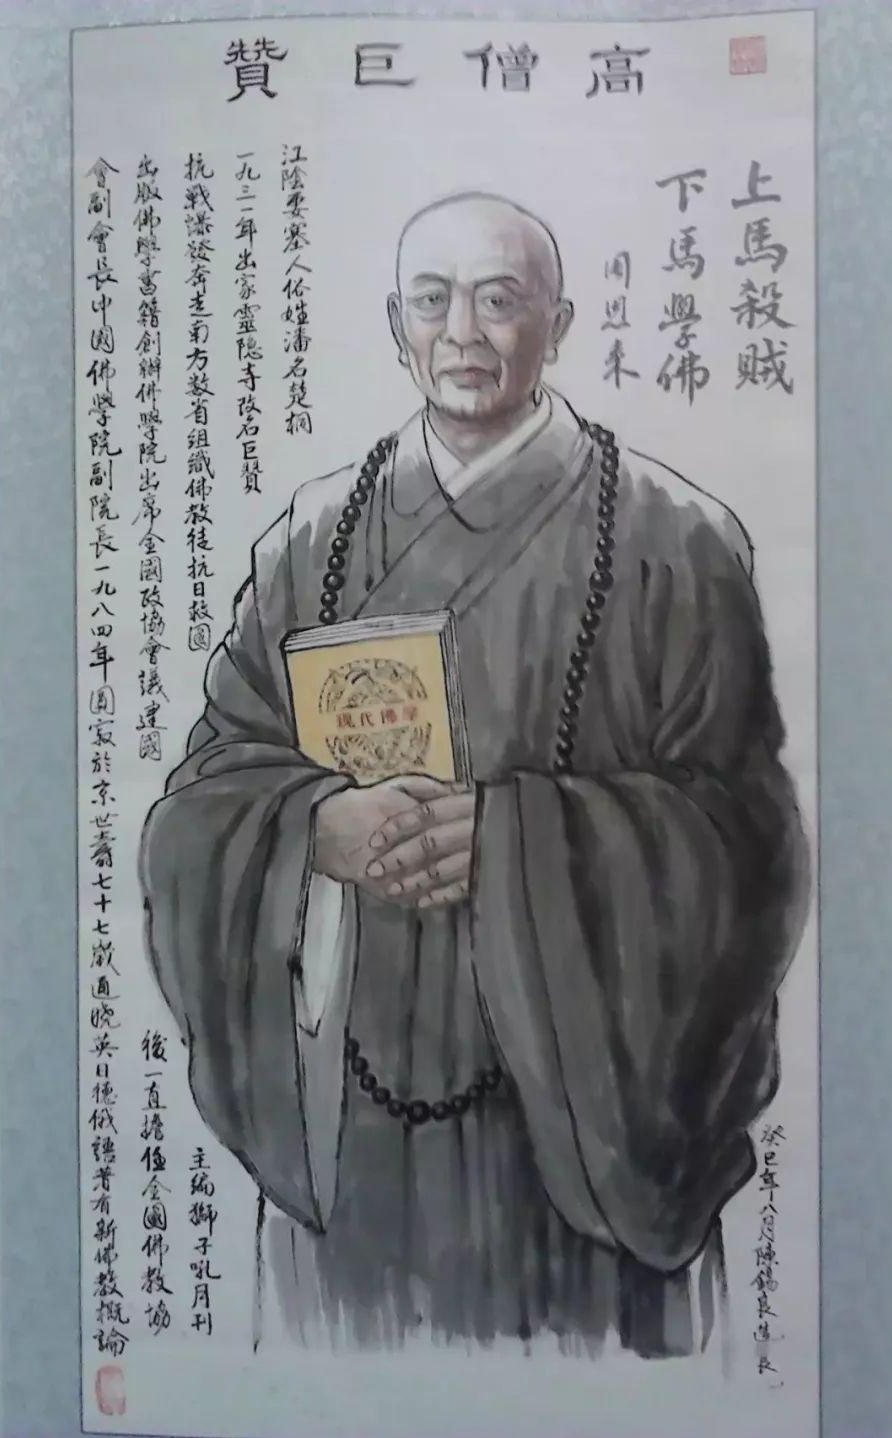 高僧巨贊
上馬殺賊
下馬學佛
周恩来
江陰要塞人俗姓潘名楚桐
一九三一年出家靈隐寺改名巨贊
抗戰爆發奔走南方数省組織佛教徒抗日救國
主编獅子吼月刊
出版佛學書籍創辦佛學院出席全國政協會議建國
後一直擔任全國佛教協
會副會長中國佛學院副院長一九八四年圓寂於京世壽七十七歲通晓英日德俄語著有新佛教概論
现代佛學
癸巳年八月陳錫良造